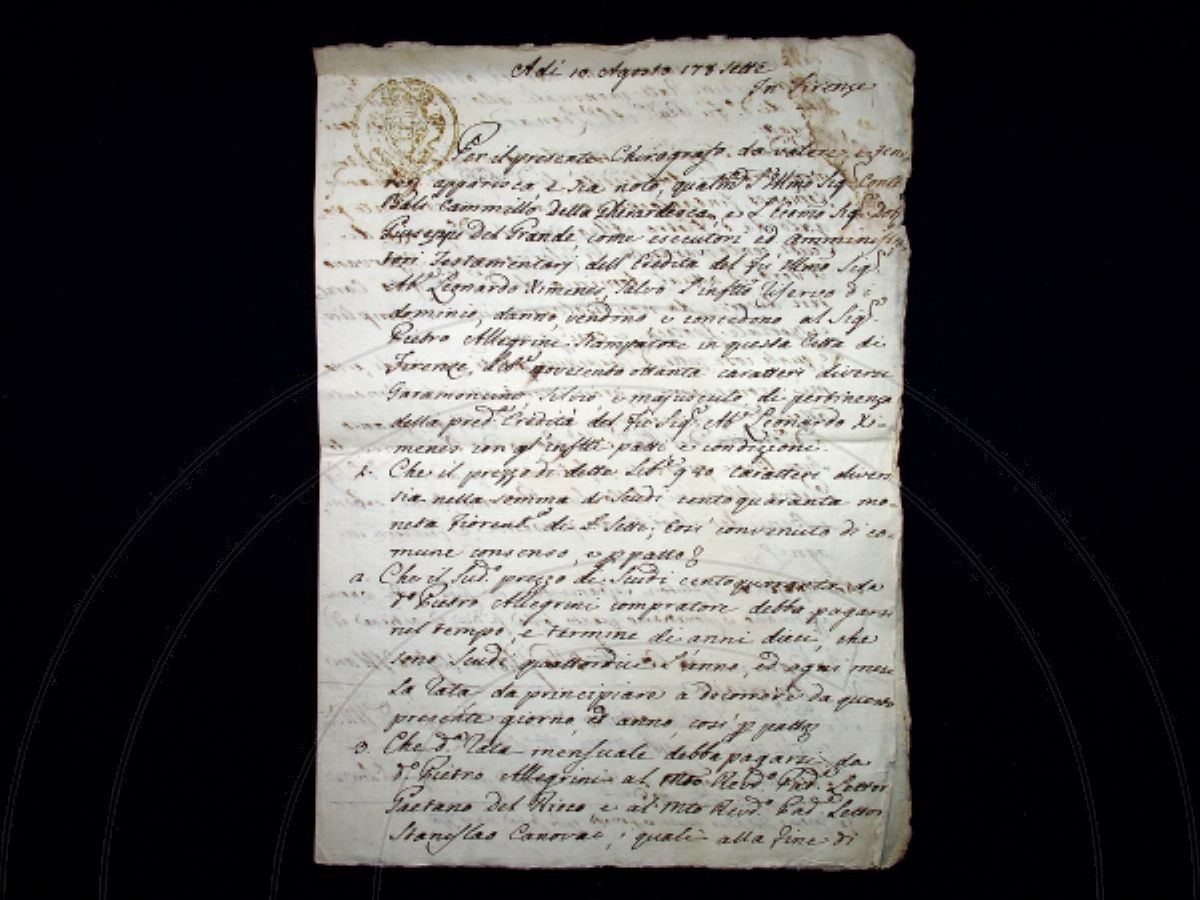 Adi 10 Agosto 178 sette
In Firenze
Per il presente Chirografo da valere e
apparisca, e sia noto, qualm.e l'Ill.mo Sig.
Balì Cammillo della Gherardesca, e
Giuseppe Del Grande, come esecutori ed amminist
tori Testamentarj dell'Eredità del fù Ill.mo Sig.
Ab.e Leonardo Ximenes, salvo l'infr.to riservo di
dominio, danno, vendino e concedono al Sig.
Pietro Allegrini Stampatore in questa Città di
Firenze, Lib.e novecento ottanta caratteri diversi
Garamoncino Silvio e majuscolo di pertinenza
della pred.a Eredità del fù Sig.e Ab.e Leonardo Xi-
menes con gl'infr.tti patti e condizioni.
1. Che il prezzo di dette Lib.e 980 caratteri diversi
sia nella somma di Scudi centoquaranta mo-
neta Fiorent.a di L. sette; Così convenuto di co-
mune consenso, e p patto
2. Che il sud.o prezzo di Scudi centoquaranta da
d.o Pietro Allegrini compratore debba pagarsi
nel tempo, e termine di anni dieci, che
sono Scudi quattordici l'anno, ed ogni mese
la rata da principiare a decorrere da questo
presente giorno, ed anno, così p patto
3. Che d.a rata mensuale debba pagarsi da
d.o Pietro Allegrini al Mto Revd.o Pad.e Lettor
Gaetano del Ricco e al Mto Revd.o Pad.e Lettor
Stanislao Canovai, i quali alla fine di